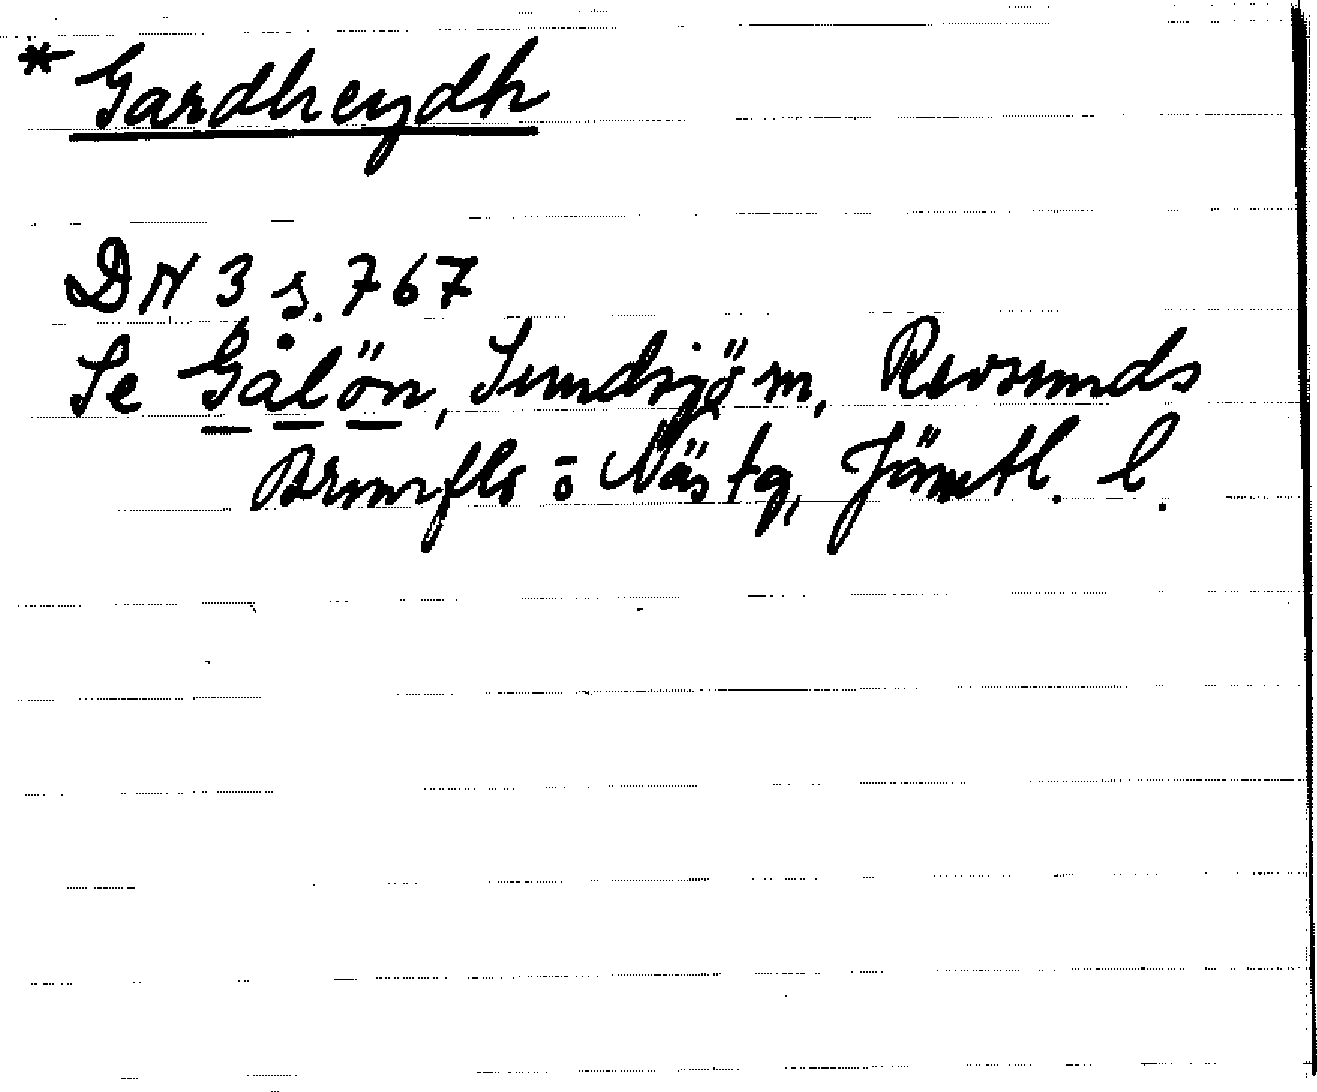 * Gardheydh
DN 3 s. 767
Se Gålön, Sundsjö sn, Revsunds
Brunflo o Näs tg, Jämtl. l.